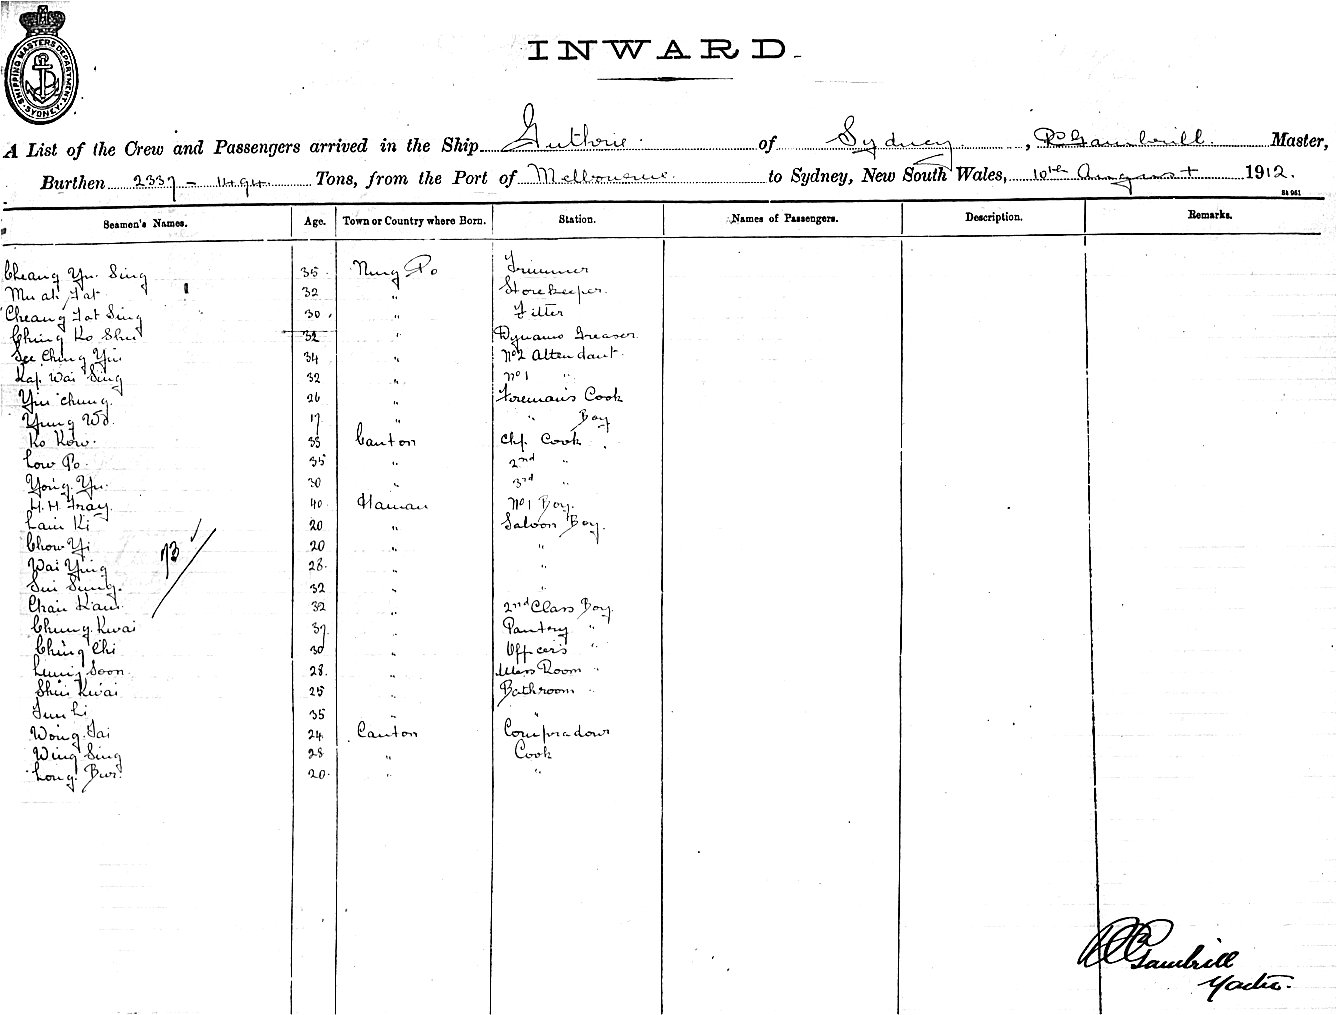 SHIPPING MASTERS DEPARTMENT SYDNEY
INWARD.
A List of the Crew and Passengers arrived in the Ship Guthrie of Sydney, Gambrill Master,
Burthen 2337 - 1494 Tons, from the Port of Melbourne to Sydney, New South Wales, 10th August 1912.
Seamen's Names. Age. Town or Country where Born. Station. Names of Passengers. Description. Remarks.
Cheang Yu Sing 35 Ning Po Trimmer
Mu ah Fat 32 " Storekeeper
Cheang Fat Sing 30 " Fitter
Ching Ko Shu 32 " Dynamo Greaser
See Ching Yui 34 " No 2 Attendant
Kap Wai Sing 32 " No 1 "
Yui Chung 26 " Foreman's Cook
Yung Wo 17 " " Boy
Ko Kow 35 Canton Chf. Cook
Low Po 35 " 2nd "
Yong Yu 30 " 3rd "
H. H. Fray 40 Hainan No 1 Boy
Lam Ki 20 " Saloon Boy
Chow Yi 20 " "
Wai Ying 28 " "
Sui Sung 32 " "
Chan Kam 32 " 2nd Class Boy
Chung Kwai 37 " Pantry "
Ching Chi 30 " Officers "
Lung Soon 28 " Mess Room "
Shui Kwai 25 " Bathroom "
Fun Li 35 " "
Wong Tai 24 Canton Compradour
Wing Sing 28 " Cook
Long Bur 20 " "
73
Gambrill
Master